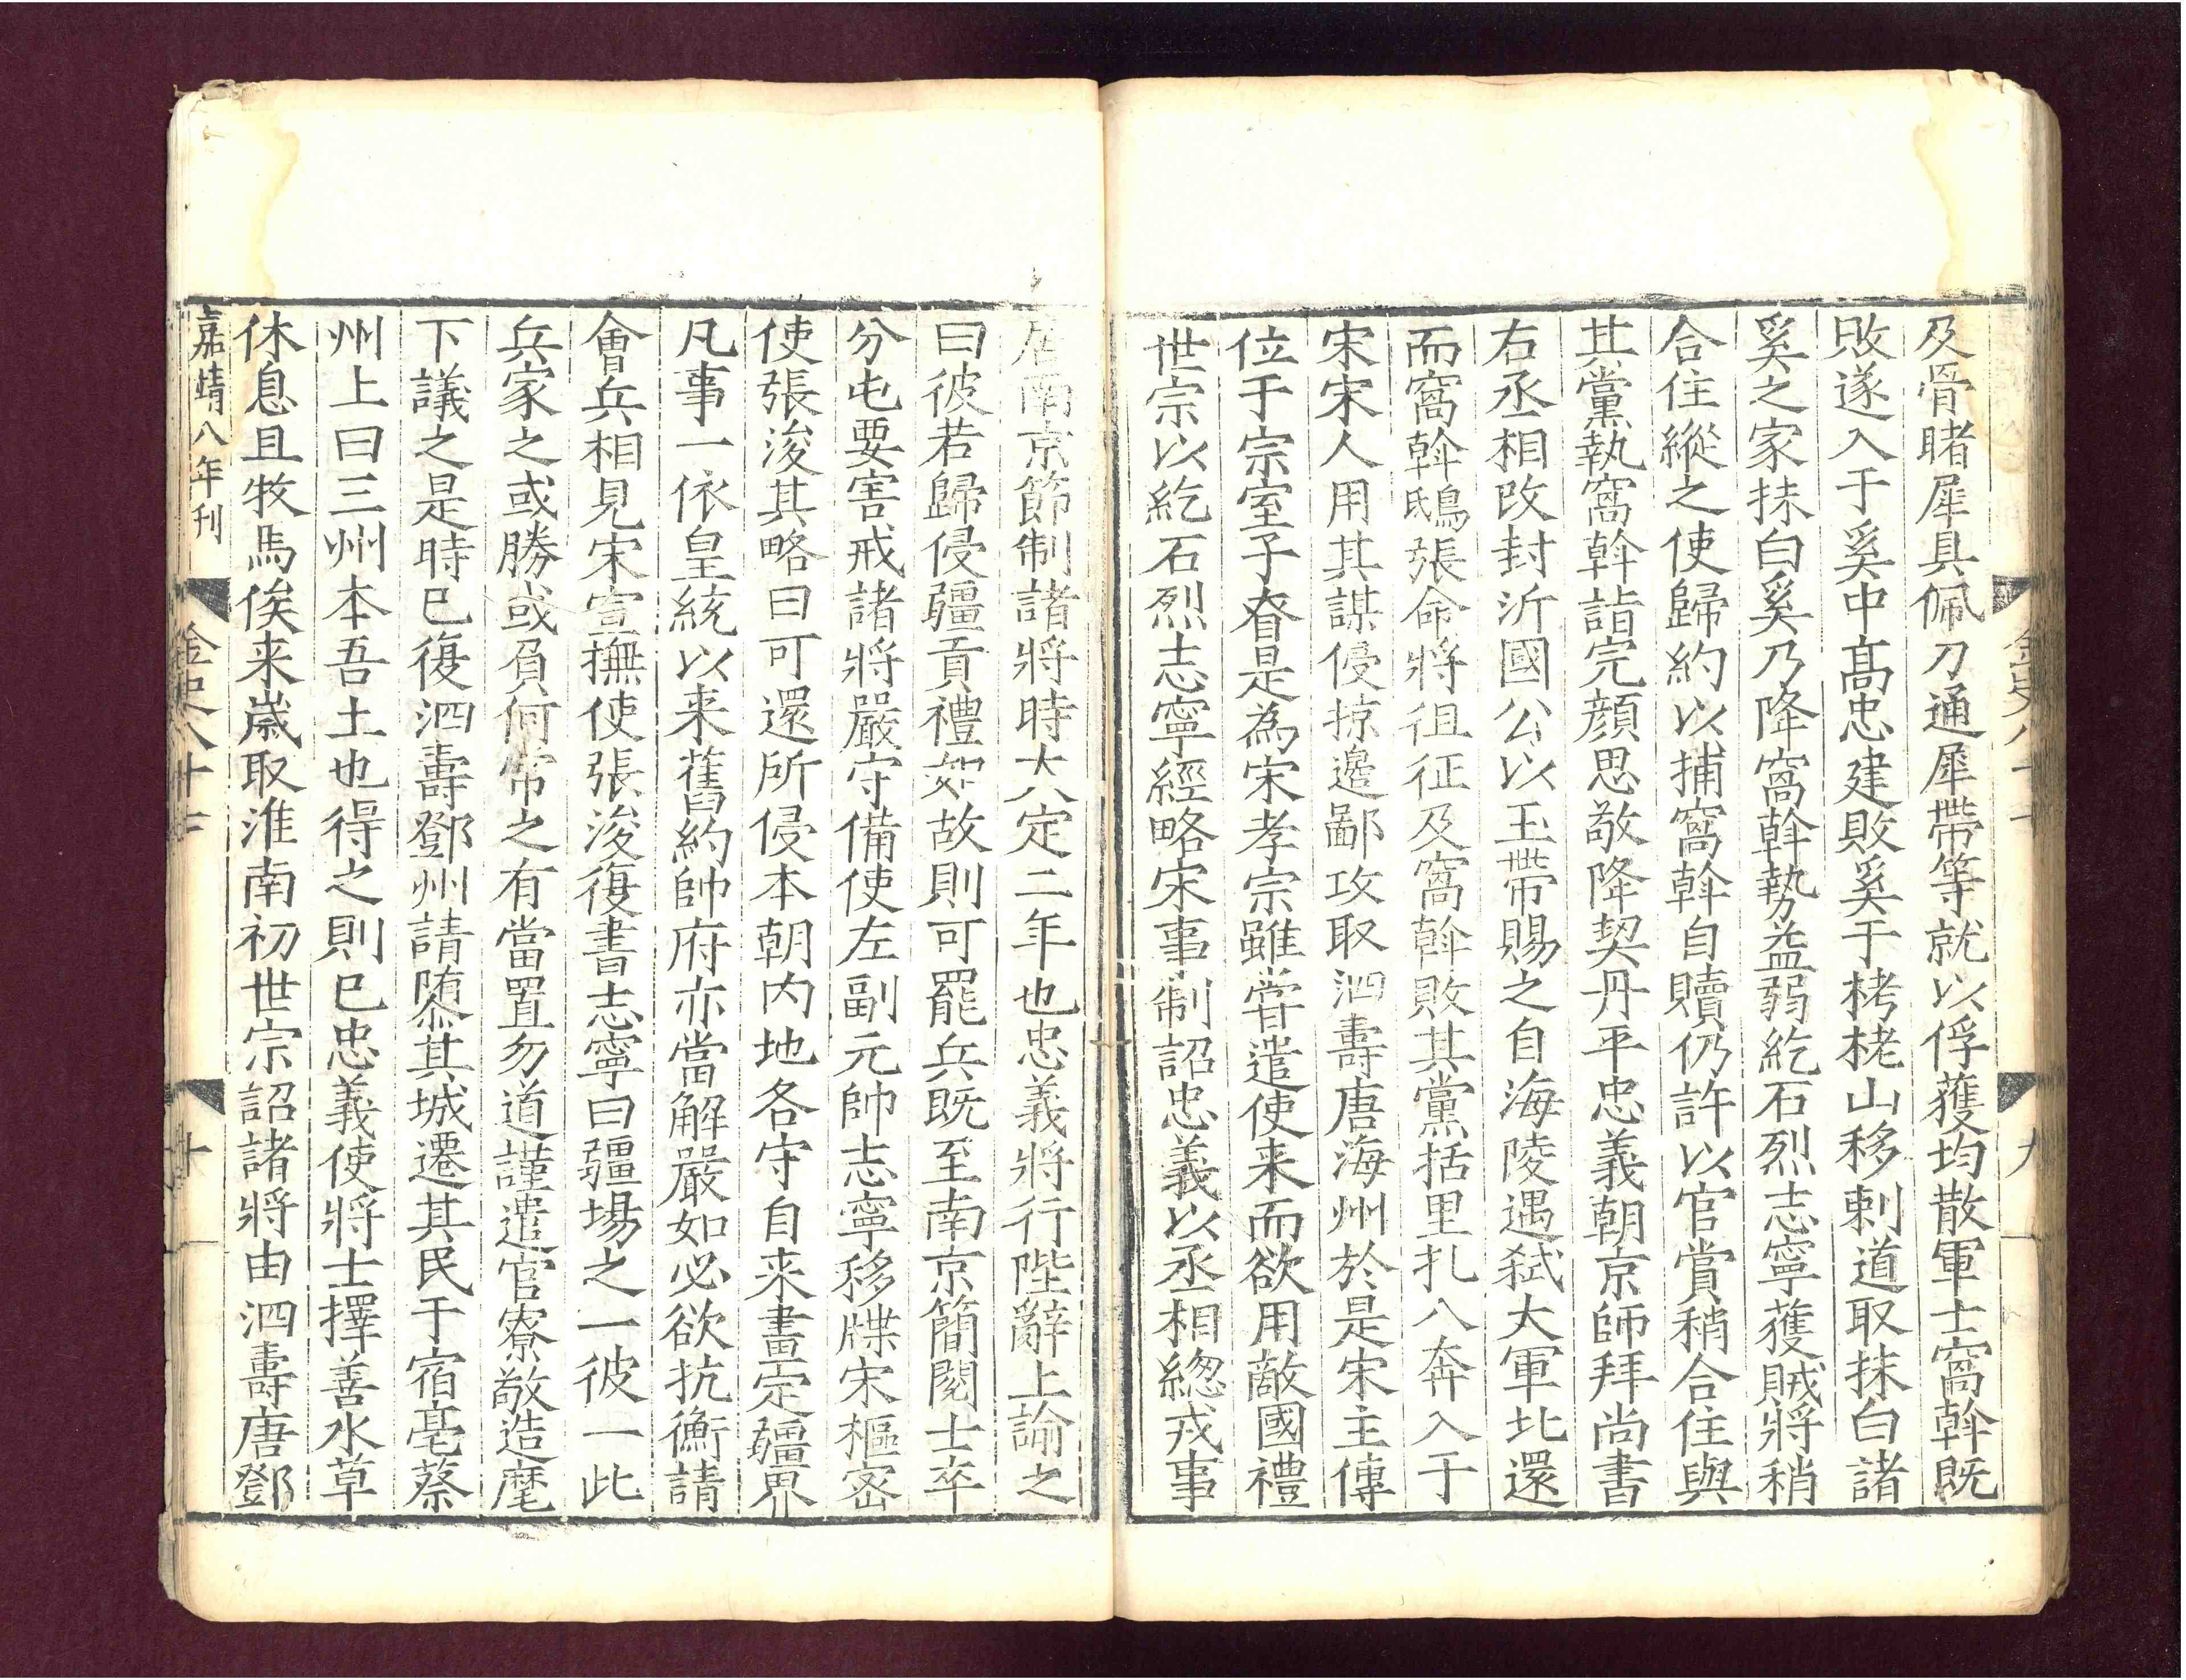 及骨睹犀具佩刀通犀帶等就以俘獲均散軍士窩斡既
敗遂入于奚中髙忠建敗奚于栲栳山移剌道取抹白諸
奚之家抹白奚乃降窩斡勢益弱紇石烈志寧獲賊將稍
合住縱之使歸約以捕窩斡自贖仍許以官賞稍合住與
其黨執窩斡詣完顔思敬降契丹平忠義朝京師拜尚書
右丞相改封沂國公以玉帶賜之自海陵遇弑大軍北還
而窩斡鴟張命將徂征及窩斡敗其黨括里扎八奔入于
宋宋人用其謀侵掠邊鄙攻取泗壽唐海州於是宋主傳
位于宗室子眘是為宋孝宗雖嘗遣使来而欲用敵國禮
世宗以紇石烈志寧經略宋事制詔忠義以丞相緫戎事
居南京節制諸將時大定二年也忠義將行陛辭上諭之
曰彼若歸侵疆貢禮如故則可罷兵既至南京簡閱士卒
分屯要害戒諸將嚴守備使左副元帥志寧移牒宋樞宻
使張浚其略曰可還所侵本朝内地各守自来畫定疆界
凡事一依皇統以来舊約帥府亦當解嚴如必欲抗衡請
會兵相見宋宣撫使張浚復書志寧曰疆場之一彼一此
兵家之或勝或負何常之有當置勿道謹遣官寮敬造麾
下議之是時已復泗壽鄧州請隳其城遷其民于宿亳蔡
州上曰三州本吾土也得之則已忠義使將士擇善水草
休息且牧馬俟来歳取淮南初世宗詔諸將由泗壽唐鄧
嘉靖八年刊 金史八十七 十